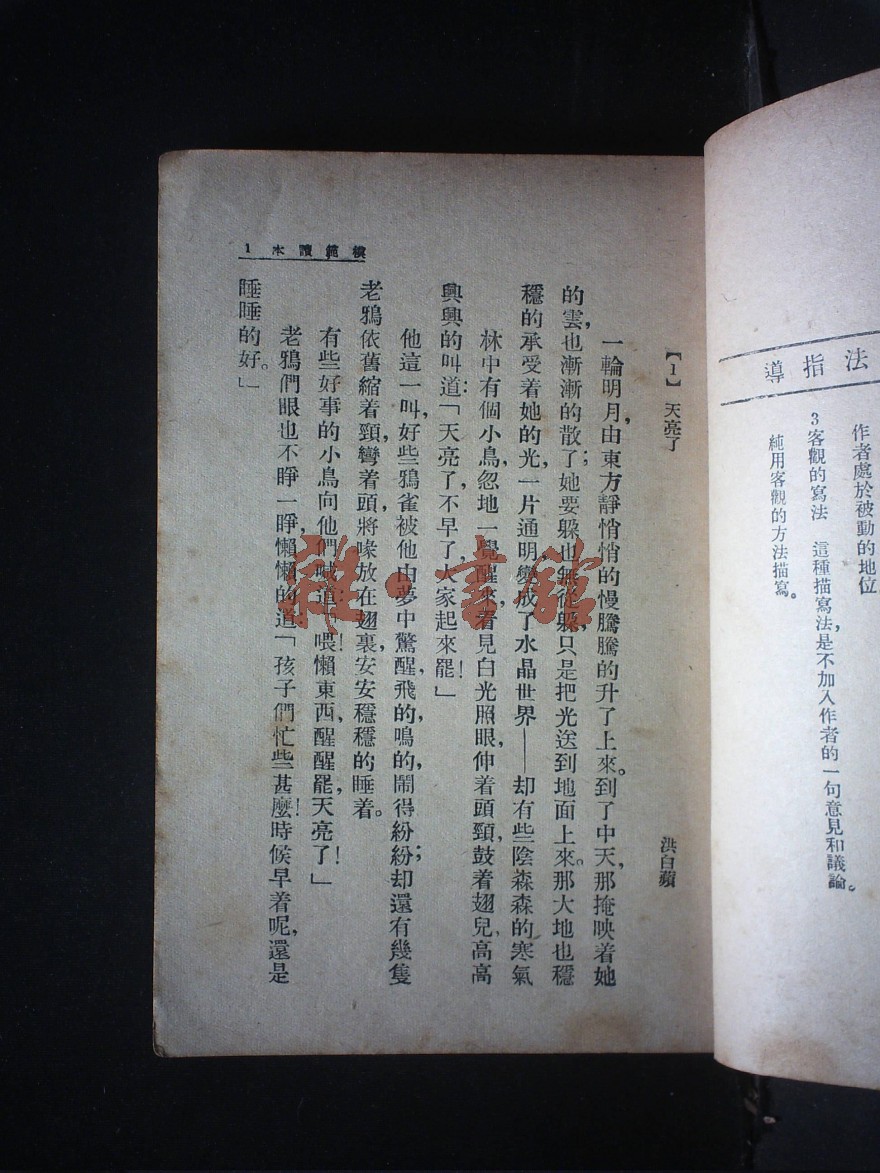 法指導
作者處於被動的地位
3客觀的寫法　這種描寫法是不加入作者的一句意見和議論。
純用客觀的方法描寫。
模範讀本　1
【1】天亮了　洪白蘋
一輪明月，由東方靜悄悄的慢騰騰的升了上來。到了中天，那掩映着她
的雲，也漸漸的散了；她要躱也無從躱，只是把光送到地面上來。那大地也穩
穩的承受着她的光，一片通明，變成了水晶世界——却有些陰森森的寒氣
林中有個小鳥，忽地一覺醒來，看見白光照眼，伸着頭頸，鼓着翅兒，高高
興興的叫道：「天亮了，不早了，大家起來罷！」
他這一叫，好些鴉雀被他由夢中驚醒，飛的，鳴的，鬧得紛紛；却還有幾隻
老鴉依舊縮着頸，彎着頭，將喙放在翅裏，安安穩穩的睡着。
有些好事的小鳥向他們喊道：「喂！懶東西，醒醒罷，天亮了！」
老鴉們眼也不睜一睜，懶懶的道：「孩子們忙些甚麼！時候早着呢，還是
睡睡的好。」
雜·書館